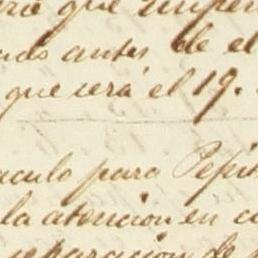 que
antes de el
que será el 19.
aculo para Pepit
la atencion en c
reparacion de